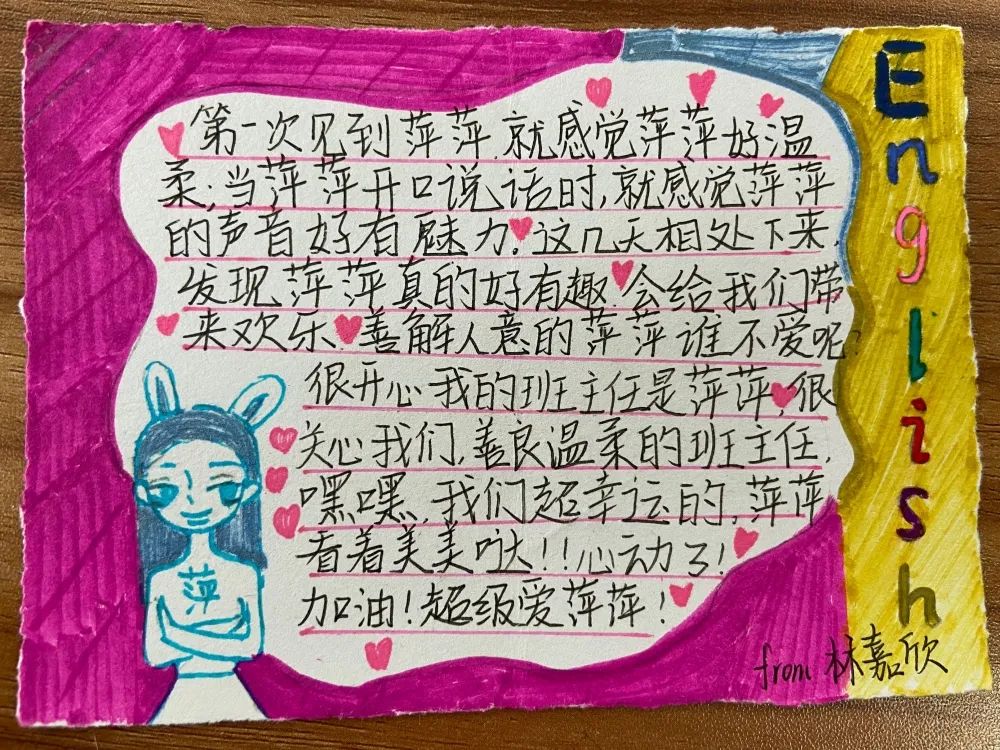 第一次见到萍萍,就感觉萍萍好温
柔;当萍萍开口说话时,就感觉萍萍
的声音好有魅力。这几天相处下来,
发现萍萍真的好有趣,会给我们带
来欢乐。善解人意的萍萍谁不爱呢?
很开心我的班主任是萍萍,很
关心我们,善良温柔的班主任,
嘿嘿,我们超幸运的,萍萍
看着美美哒!!心动了!
加油!超级爱萍萍!
萍
from 林嘉欣
English